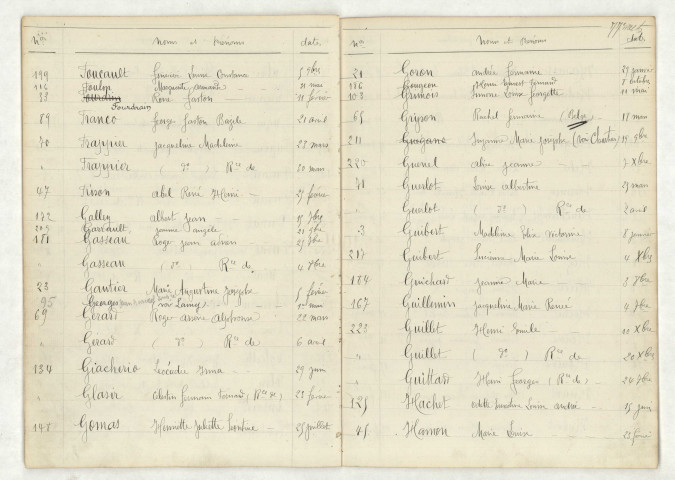 Nos Noms et Prénoms date
199 Foucault Louise 5 9bre
116 Foulon Marguerite 31 mai
33 Fourdrain René Gaston 11 février
89 Franco Serge Gaston Bazile 21 avril
70 Frappier Jacqueline Madeleine 23 mars
" Frappier ( do ) Rce de 30 mars
47 Frison Abel René Henri 27 février
172 Gallen Albert Jean 15 7bre
209 Garrault Jeanne Angèle
181 Gasseau Roger Jean 27 7bre
" Gasseau ( do ) Rce de 4 7bre
23 Gautier Marie Augustine Josèphe 5 février
95 Georges (voir Lamy)
69 Gérard Roger Arsène Alphonse 22 mars
" Gérard ( do ) Rce de 6 avril
134 Giacherio Léocadie Irma 29 juin
" Glasir Fernand (Rce de) 23 février
148 Gomas Henriette Juliette Léontine 25 juillet
Nos Noms et Prénoms date
21 Goron Andrée Germaine 29 janvier
186 Gougeon Ernest Fernand 8 octobre
103 Grimois Simone Louise Georgette 11 mai
65 Grison Rachel Germaine 18 mars
211 Suzanne Marie Josèphe (voir Chartier) 19 9bre
220 Guenel Alice Jeanne 7 Xbre
71 Guerlot Louise Albertine 23 mars
" Guerlot ( do ) Rce de 2 avril
3 Guibert Madeleine 8 janvier
217 Guibert Lucienne Marie Louise 4 Xbre
164 Guichard Jeanne Marie 8 7bre
167 Guillemin Jacqueline Marie Renée 4 7bre
223 Guillet Henri Emile 10 Xbre
" Guillet ( do ) Rce de 20 Xbre
" Guittard Henri Georges (Rce de) 24 7bre
125 Hachet Odette Louise Andrée 15 juin
45 Hamon Marie Louise 23 février